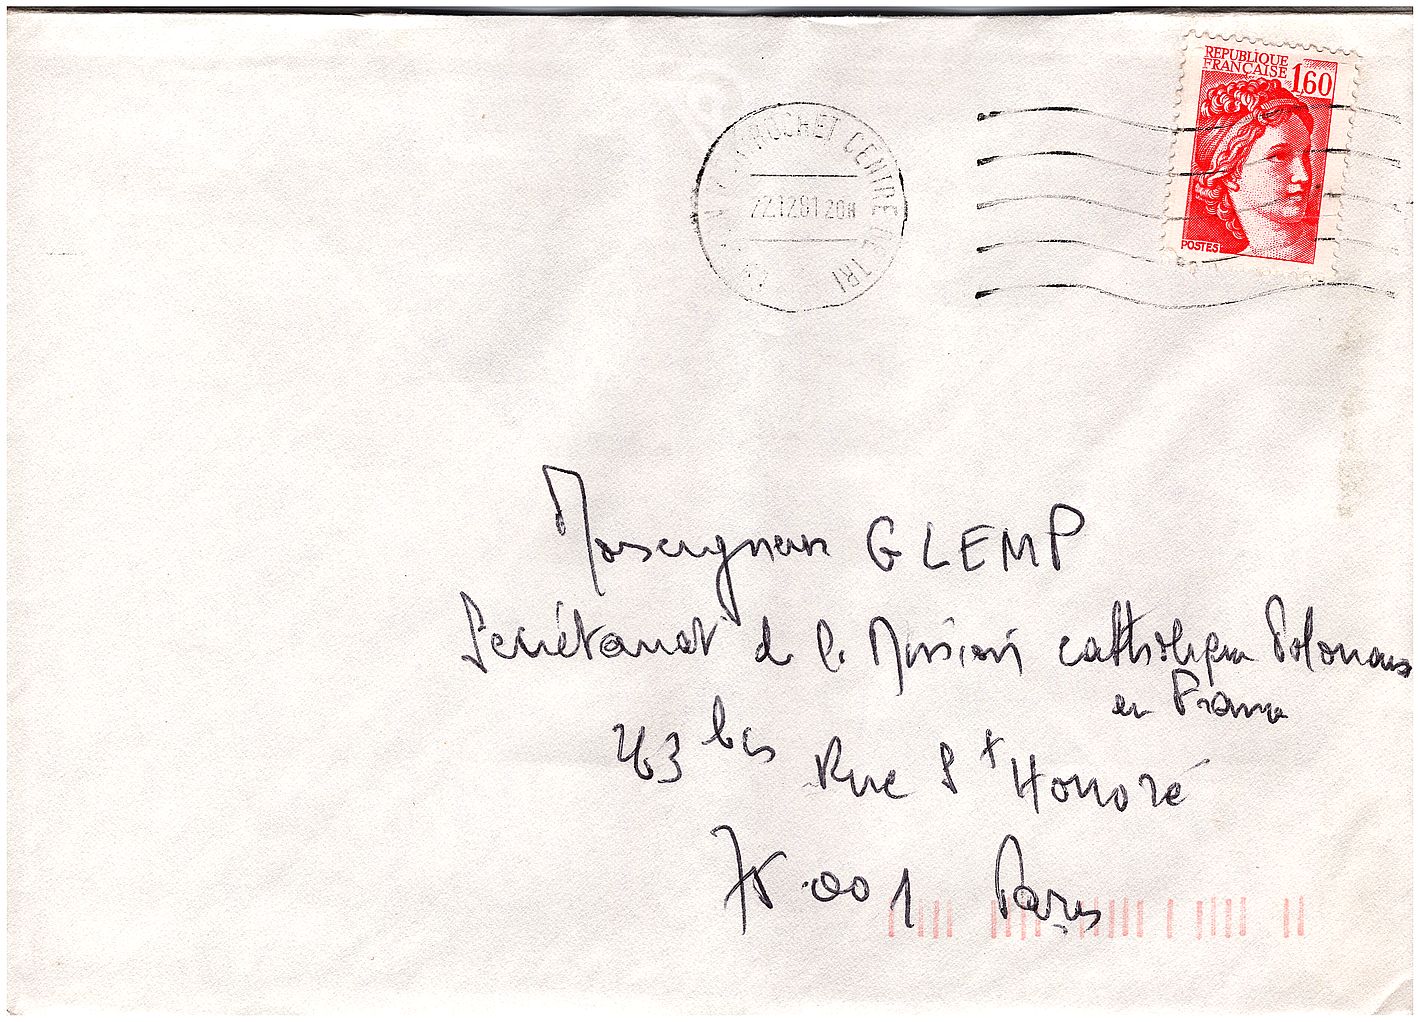 REPUBLIQUE
FRANÇAISE 1,60
POSTES
ROCHET CENTRE DE TRI
22.12.81 20H
Monseigneur GLEMP
Secrétariat de la Mission catholique Polonaise
en France
263 bis Rue St Honoré
75001 Paris